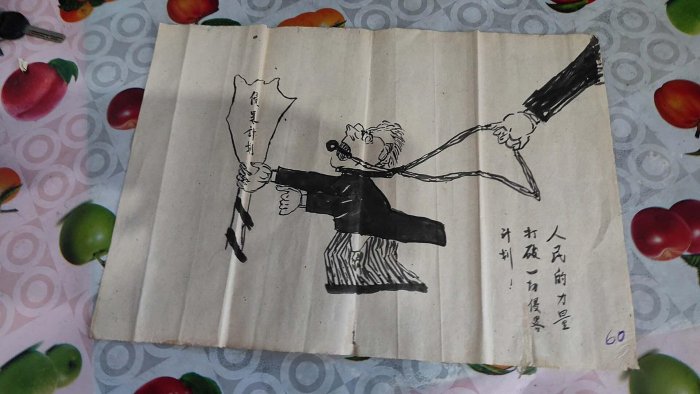 侵畧计划
人民的力量
打破一切侵畧
计划！
60